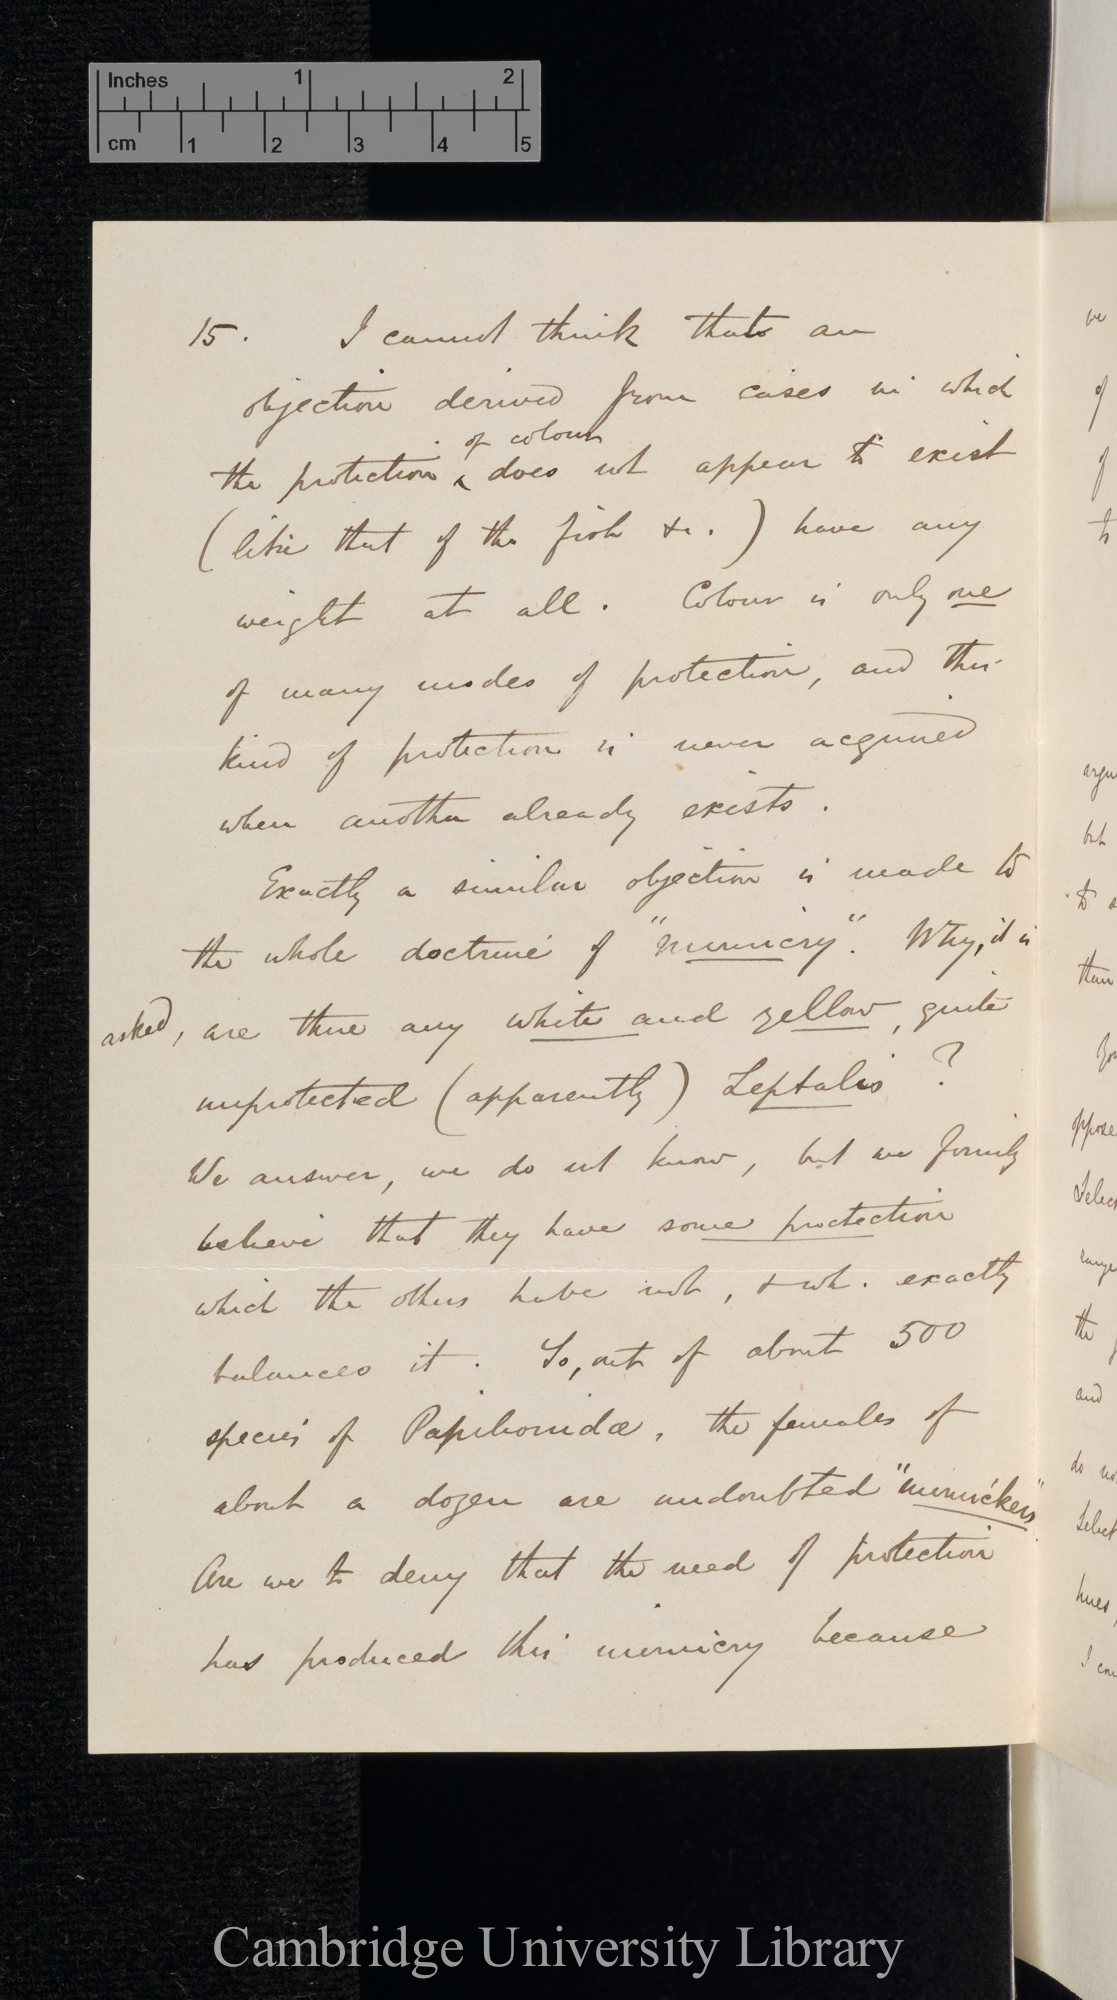 Inches 1 2
cm 1 2 3 4 5
15. I cannot think that an
objection derived from cases in which
of colour
the protection ^ does not appear to exist
(like that of the fish &c.) have any
weight at all. Colour is only one
of many modes of protection, and this
kind of protection is never acquired
when another already exists.
Exactly a similar objection is made to
the whole doctrine of "mimicry". Why, it is
asked, are there any white and yellow, quite
unprotected (apparently) Leptalis?
We answer, we do not know, but we firmly
believe that they have some protection
which the others have not, & wh. exactly
balances it. So, out of about 500
species of Papilionidæ, the females of
about a dozen are undoubted "mimickers"
Are we to deny that the need of protection
has produced this mimicry because
of
of
to
but
than
oppose
Select
range
the
and
Select
hues,
I
Cambridge University Library